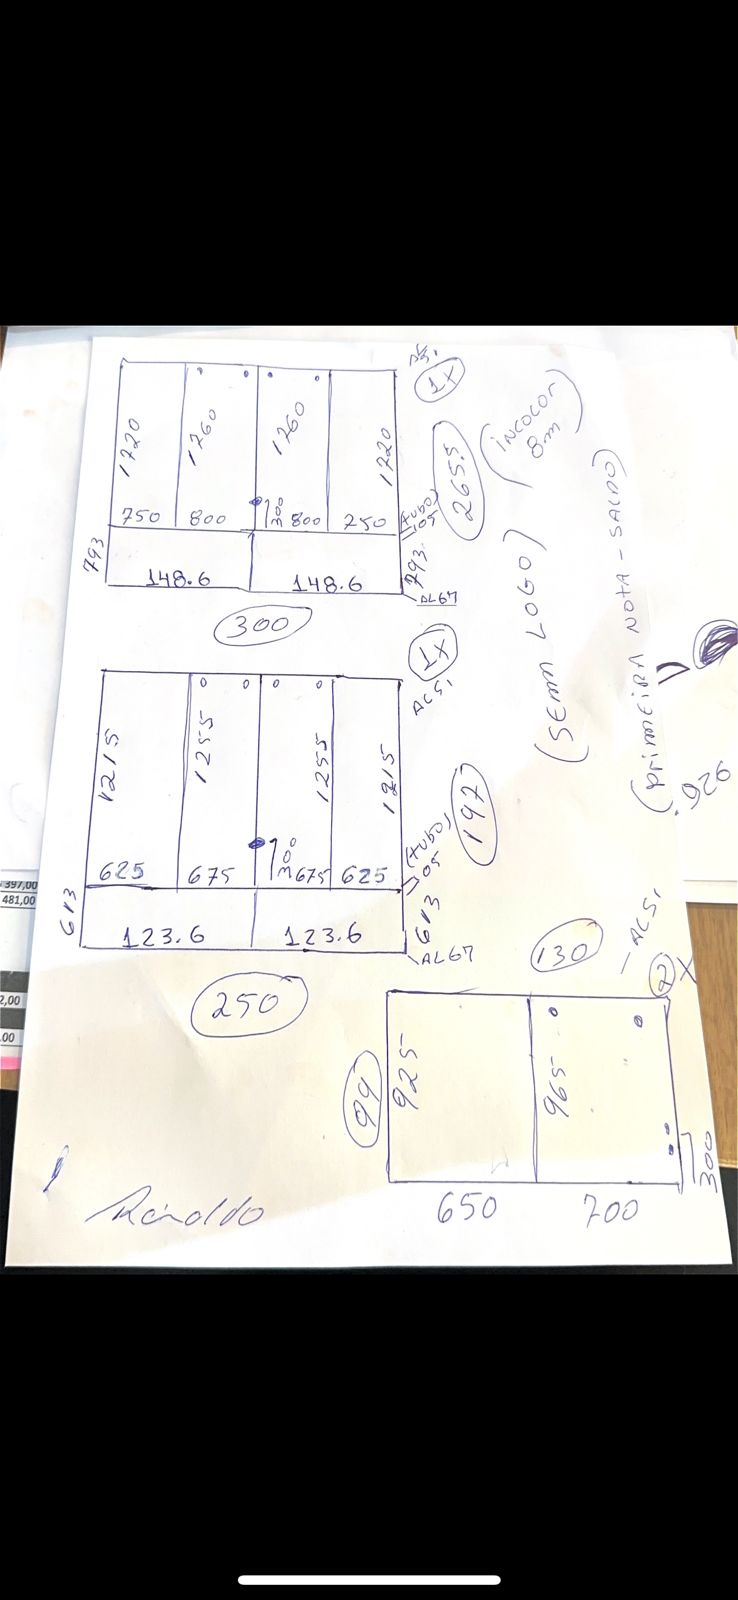 1x
1720
1760
1760
1720
750
800
300
800
250
(tubo)
05
265.5
793
148.6
148.6
793
AL67
300
(INCOLOR
8m)
(SEM LOGO)
(PRIMEIRA NOTA - SALDO)
1x
ACS,
1215
1255
1255
1215
625
675
300
675
625
(tubo)
05
197
613
123.6
123.6
613
AL67
250
926
397,00
481,00
2,00
.00
130
ACS,
2x
99
925
965
300
650
700
Reinaldo